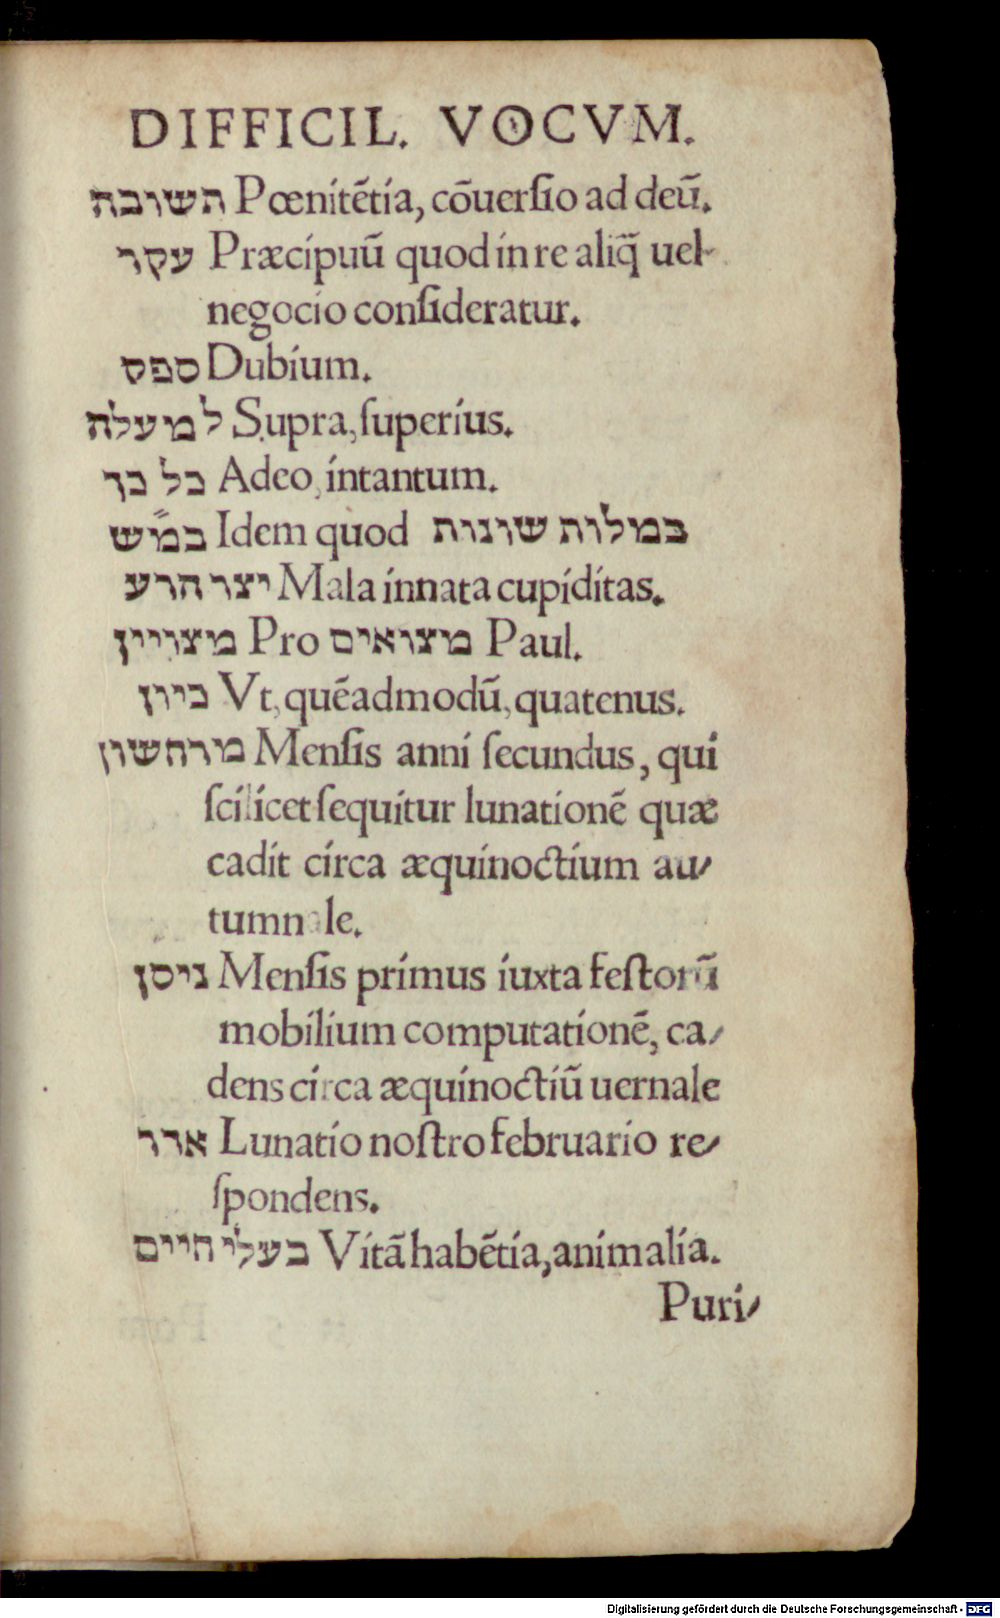 DIFFICIL. VOCVM.
השובה Pœnitẽtia, cõuerſio ad deũ.
עקר Præcipuũ quod in re aliq̃ uel
negocio conſideratur.
ספס Dubium.
למעלה Supra, ſuperius.
כל כך Adeo, intantum.
במ״ש Idem quod במלות שונות
יצר הרע Mala innata cupiditas.
מצויין Pro מצואים Paul.
כיון Vt, quẽadmodũ, quatenus.
מרחשון Menſis anni ſecundus, qui
ſcilicet ſequitur lunationẽ quæ
cadit circa æquinoctium au⸗
tumnale.
ניסן Menſis primus iuxta feſtorũ
mobilium computationẽ, ca⸗
dens circa æquinoctiũ uernale
אדר Lunatio noſtro februario re⸗
ſpondens.
בעלי חיים Vitã habẽtia, animalia.
Puri⸗
Digitalisierung gefördert durch die Deutsche Forschungsgemeinschaft - DFG